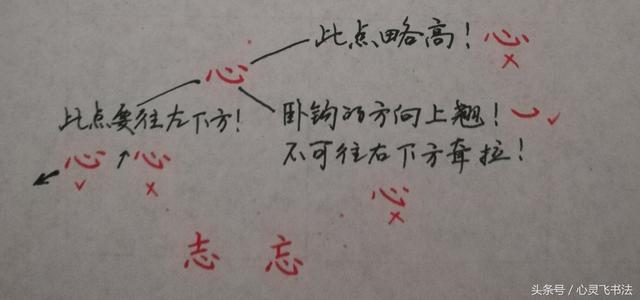 此点略高！心
心
此点要往左下方！
卧钩的方向上翘！
不可往右下方耷拉！
心 心
心
志 忘
头条号／心灵飞书法